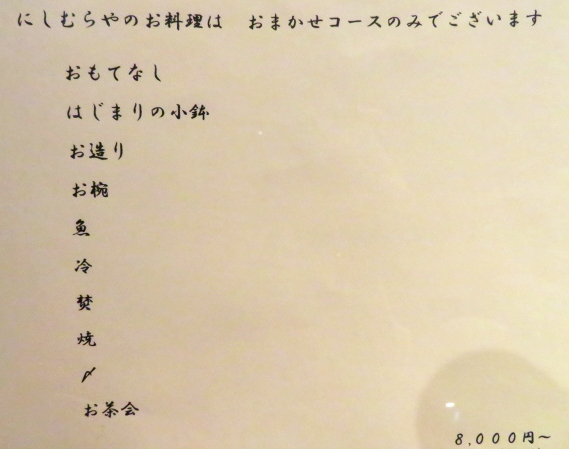 にしむらやのお料理は　おまかせコースのみでございます
おもてなし
はじまりの小鉢
お造り
お椀
魚
冷
焚
焼
〆
お茶会
8,000円～